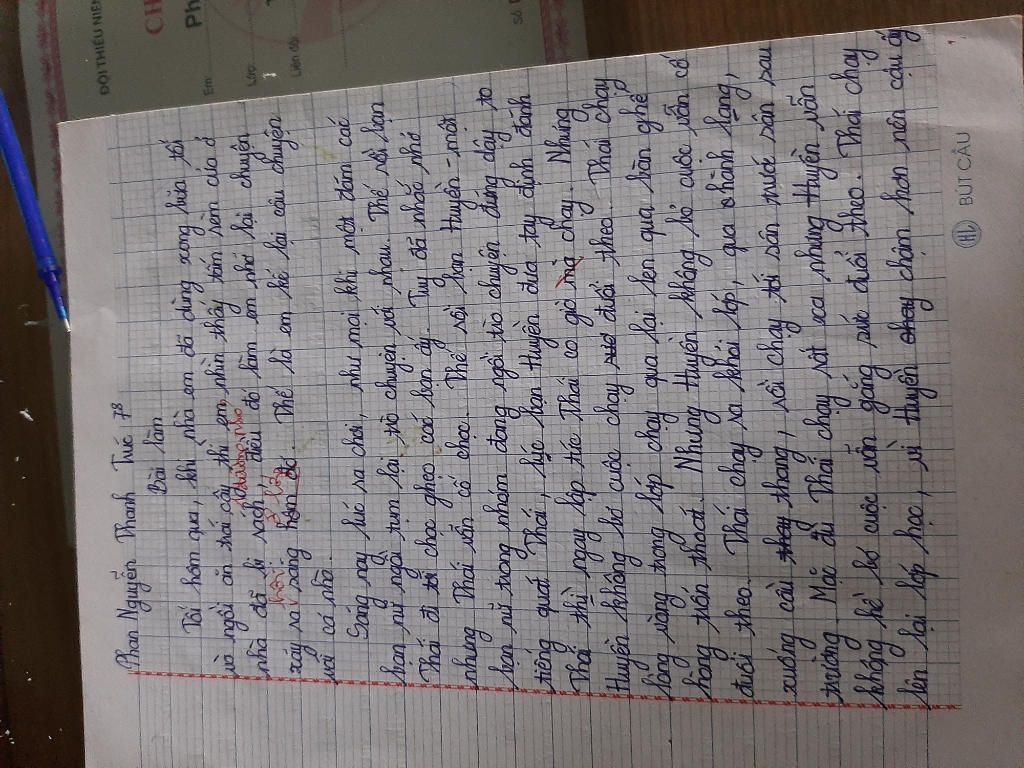 ĐỘI THIẾU NIÊN
CH
Ph
Em:
Lớp:
Liên đội
Số
Phan Nguyễn Thanh Trúc 7B
Bài làm
Tối hôm qua, khi nhà em đã dùng xong bữa tối
và ngồi ăn trái cây thì em, nhìn thấy tấm rèm cửa ở
nhà đã bị rách, điều đó làm em nhớ lại chuyện
xảy ra sáng hôm đó. Thế là em kể lại câu chuyện
với cả nhà.
Sáng nay lúc ra chơi, như mọi khi một đám các
bạn nữ ngồi tụm lại trò chuyện với nhau. Thế rồi bạn
Thái đi tới chọc ghẹo các bạn ấy. Tuy đã nhắc nhở
nhưng Thái vẫn cố chọc. Thế rồi bạn Huyền - một
bạn nữ trong nhóm đang ngồi trò chuyện đứng dậy to
tiếng quát Thái, lúc bạn Huyền đưa tay định đánh
Thái thì ngay lập tức Thái co giò mà chạy. Nhưng
Huyền không bỏ cuộc chạy đuổi theo. Thái chạy
lòng vòng trong lớp chạy qua lại len qua bàn ghế
hòng trốn thoát. Nhưng Huyền không bỏ cuộc vẫn cố
đuổi theo. Thái chạy ra khỏi lớp, qua hành lang,
xuống cầu thang, rồi chạy tới sân trước sân sau
trường. Mặc dù Thái chạy rất xa nhưng Huyền vẫn
không hề bỏ cuộc vẫn gắng sức đuổi theo. Thái chạy
lên lại lớp học, vì Huyền chạy chậm hơn nên cậu ấy
BÚT CẦU